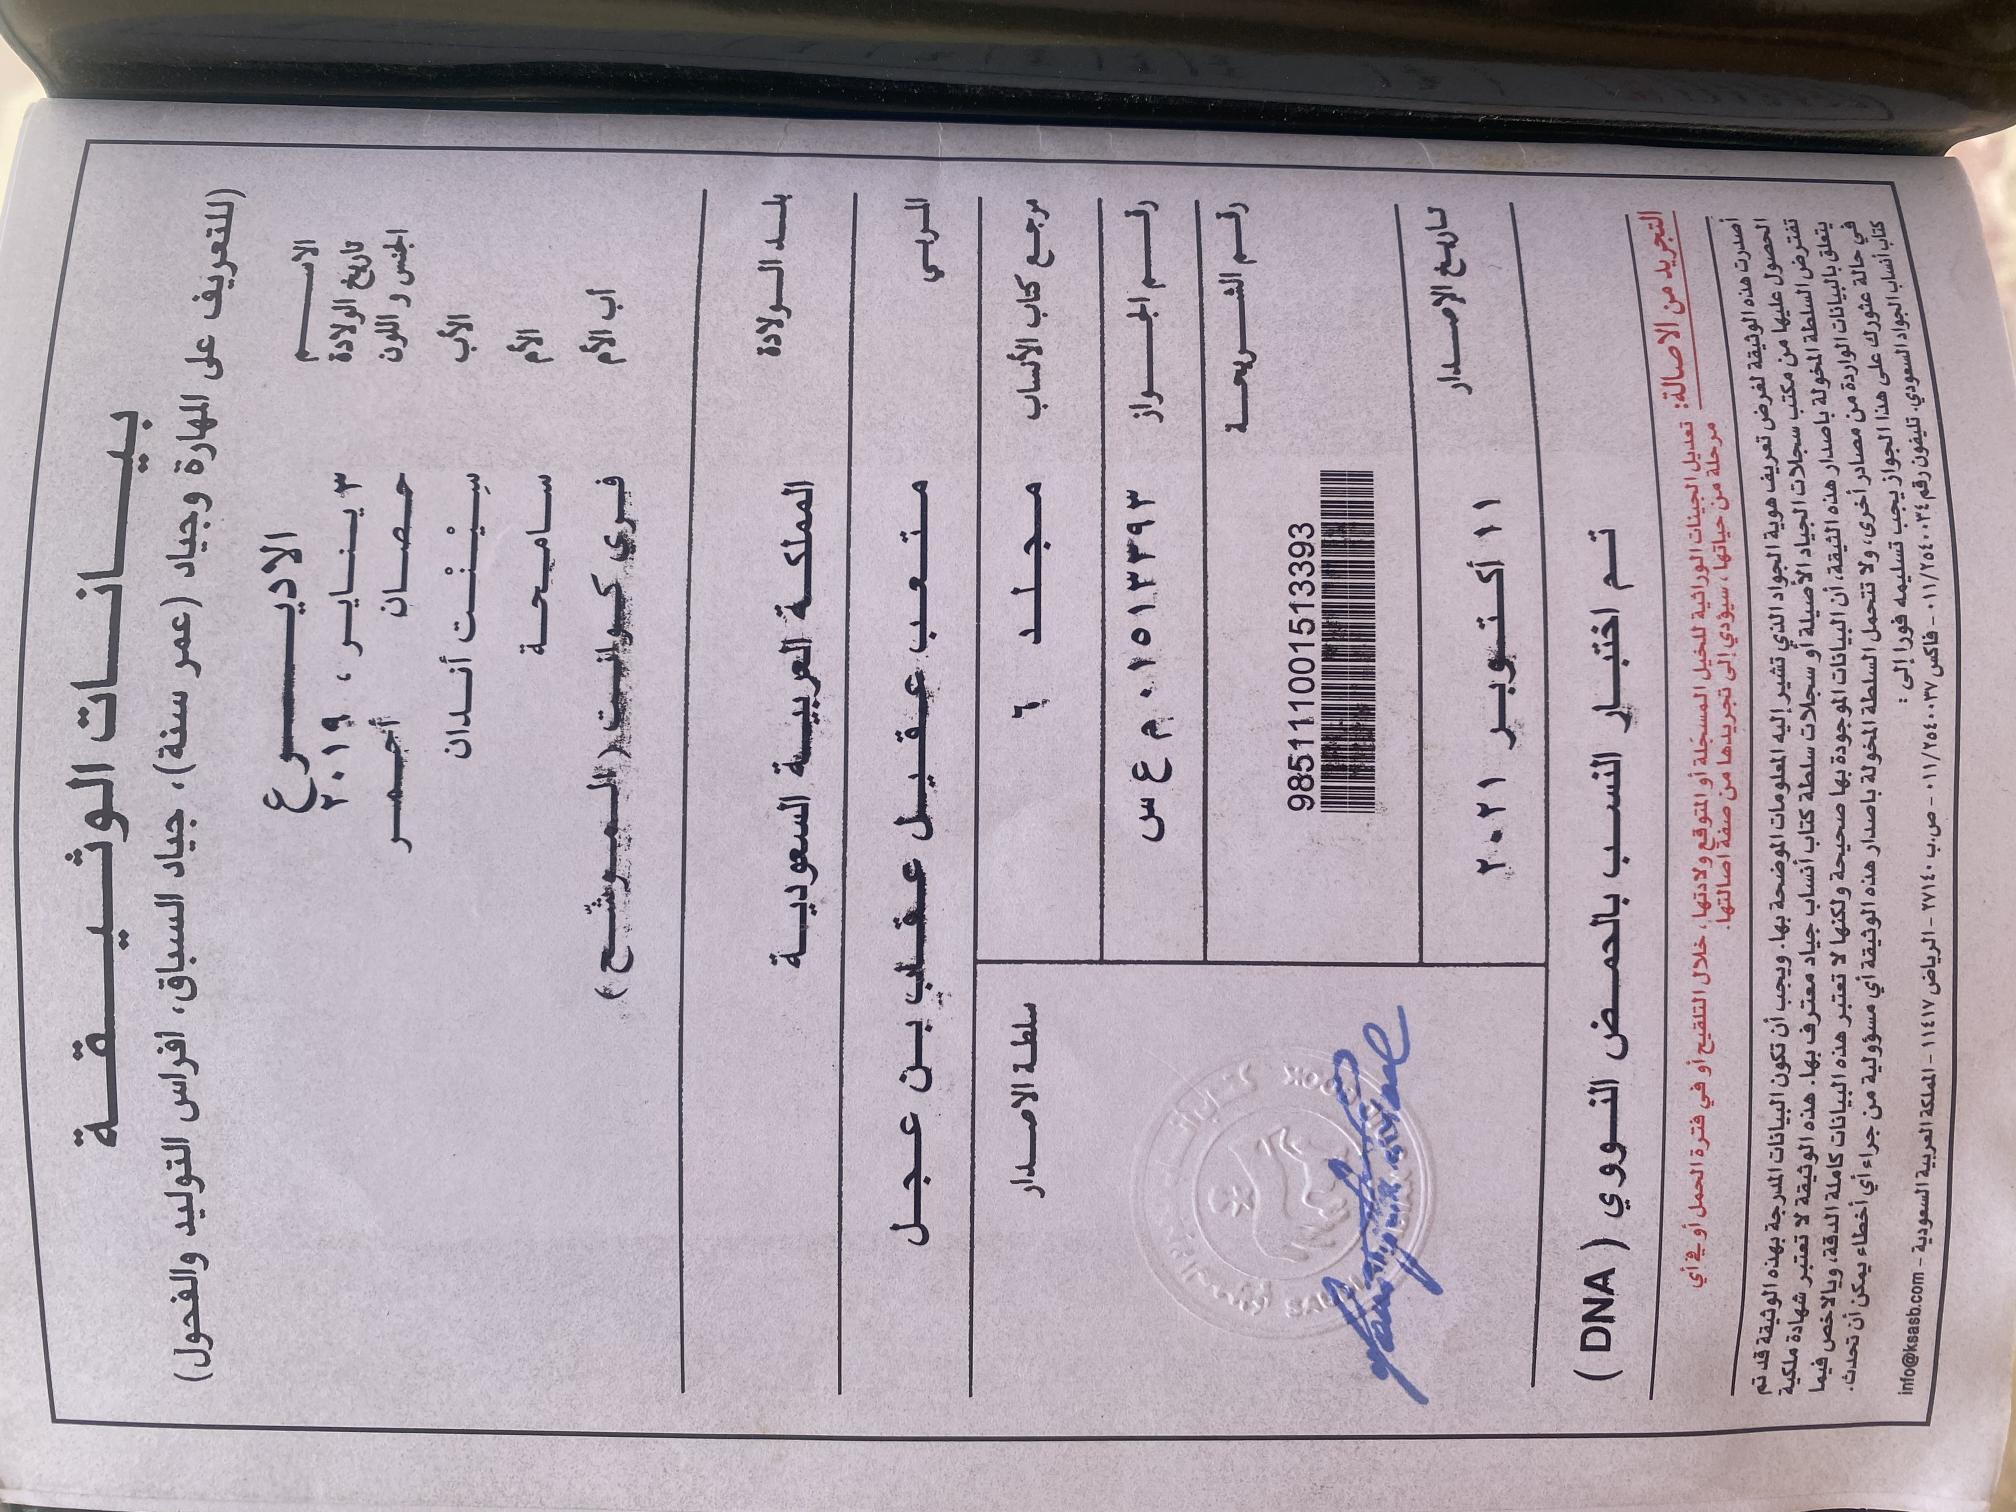 بيانات الوثيقة
(للتعريف على المهارة وجياد (عمر سنة)، جياد السباق، افراس التوليد والفحول)
الاسم الاديرع
تاريخ الولادة ٣ يناير، ٢٠١٩
الجنس و اللون حصان أحمر
الأب سِيْنْت أندان
الأم ساميحة
أب الأم فري كوانت (الموشّح)
بلد الولادة المملكة العربية السعودية
المربي متعب عقيل عقاب بن عجل
مرجع كتاب الأنساب مجلد ٦
سلطة الاصدار
رقم الجواز ٠١٥١٣٣٩٣ م ع س
رقم الشريحة
985111001513393
تاريخ الاصدار ١١ أكتوبر ٢٠٢١
تم اختبار النسب بالحمض النووي (DNA)
التجريد من الاصالة: تعديل الجينات الوراثية للخيل المسجلة أو المتوقع ولادتها، خلال التلقيح أو في فترة الحمل أو في أي
مرحلة من حياتها، سيؤدي إلى تجريدها من صفة اصالتها.
أصدرت هذه الوثيقة لغرض تعريف هوية الجواد الذي تشير إليه المعلومات الموضحة بها. ويجب أن تكون البيانات المدرجة بهذه الوثيقة قد تم
الحصول عليها من مكتب سجلات الجياد الأصيلة أو سجلات سلطة كتاب أنساب جياد معترف بها. هذه الوثيقة لا تعتبر شهادة ملكية
تفترض السلطة المخولة باصدار هذه الثيقة، أن البيانات الموجودة بها صحيحة ولكنها لا تعتبر هذه البيانات كاملة الدقة، وبالاخص فيما
يتعلق بالبيانات الواردة من مصادر أخرى، ولا تتحمل السلطة المخولة باصدار هذه الوثيقة أي مسؤولية من جراء أي أخطاء يمكن أن تحدث.
في حالة عثورك على هذا الجواز يجب تسليمه فورا إلى:
كتاب أنساب الجواد السعودي. تليفون رقم ٠١١/٢٥٤٠٠٣٤ - فاكس ٠١١/٢٥٤٠٠٣٧ - ص.ب ٢٧١٤٠ - الرياض ١١٤١٧ - المملكة العربية السعودية - info@ksasb.com